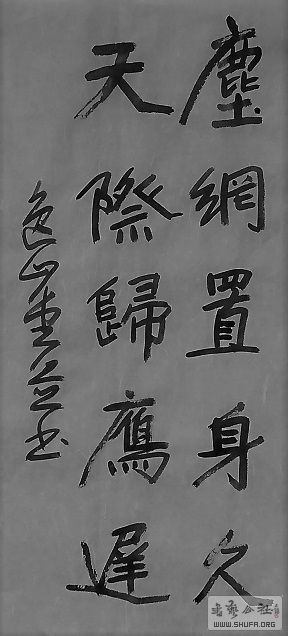 塵網置身久
天際歸鷹遲
書法公社
WWW.SHUFA.ORG